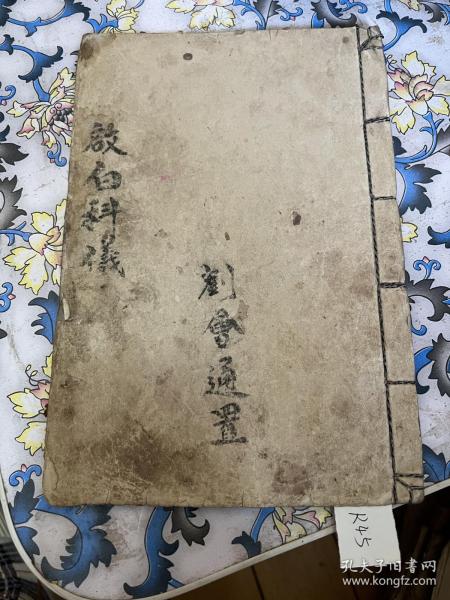 啟白科儀
劉會通置
K45
孔夫子旧书网
www.kongfz.com